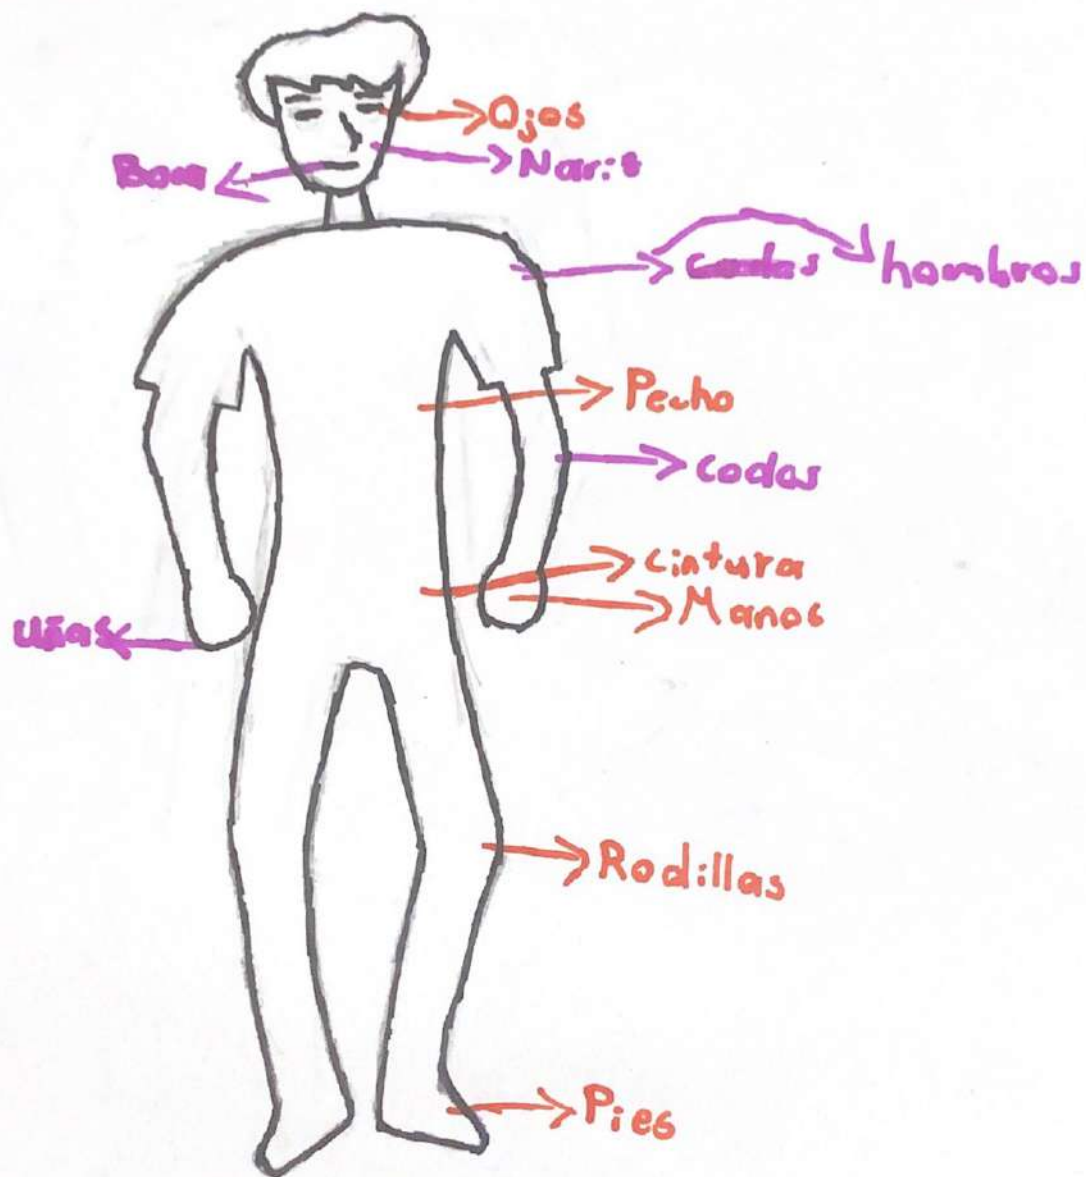 Ojos
Nariz
Boca
hombros
Pecho
codos
cintura
Manos
uñas
Rodillas
Pies